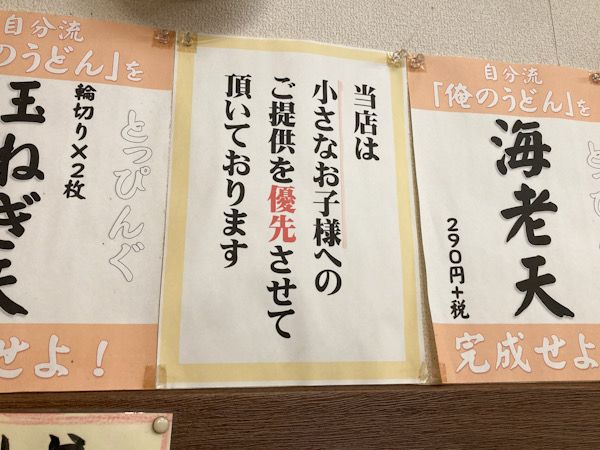 自分流
のうどん」を
とっぴんぐ
輪切り×2枚
玉ねぎ天
せよ！
当店は
小さなお子様への
ご提供を優先させて
頂いております
自分流
「俺のうどん」を
とっぴ
海老天
290円+税
完成せよ